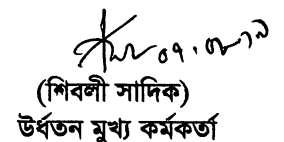 ০৭.০৮.১৯
(শিবলী সাদিক)
উর্ধতন মুখ্য কর্মকর্তা